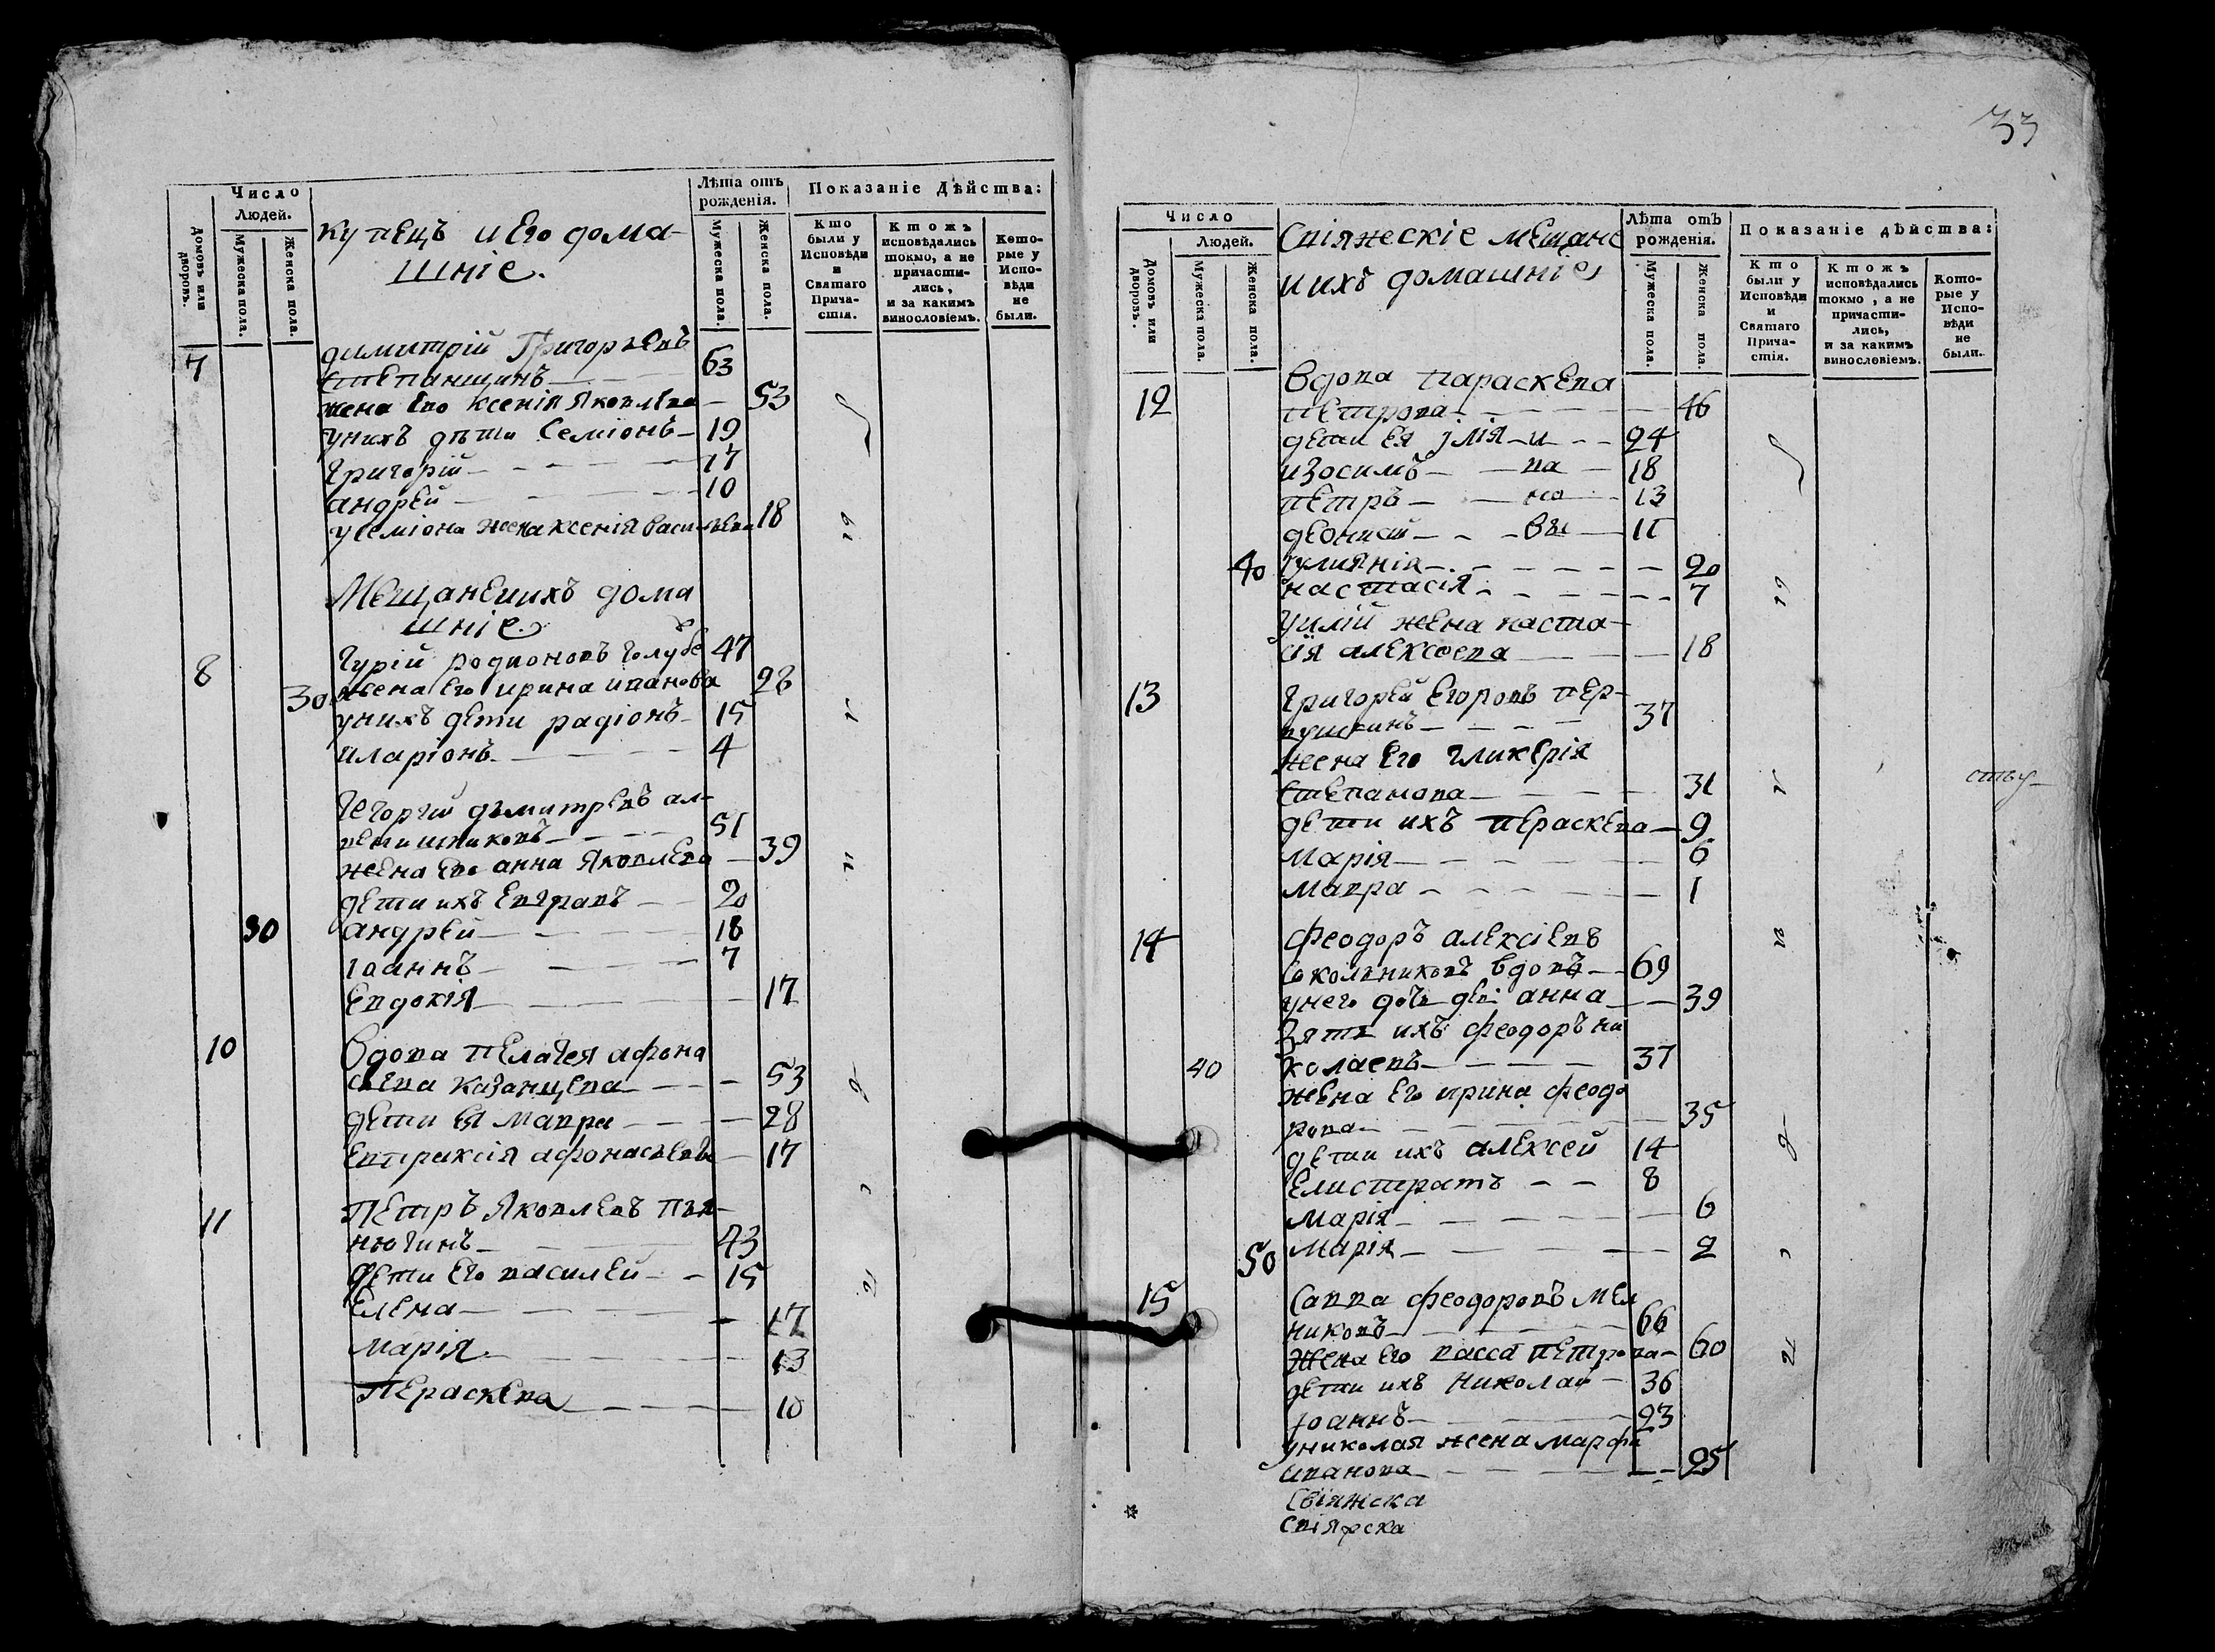 33
Число
Людей.
Домовъ или дворовъ.
Мужеска пола.
Женска пола.
купецъ и его дома-
шніе.
Лѣта отъ
рожденія.
Мужеска пола.
Женска пола.
Показаніе Дѣйства:
Кто
были у
Исповѣди
и
Святаго
Прича-
стія.
Ктожъ
исповѣдались
токмо, а не
причасти-
лись,
и за какимъ
винословіемъ.
Кото-
рые у
Испо-
вѣди
не
были.
димитрій Григорьевъ
7 степанщинъ 63
жена его ксенія Яковлева 53
унихъ дѣти Семіонъ 19
григорій 17
андрей 10
усеміона жена ксенія васильева 18
Мещане иихъ дома
шніе.
8 гурій родионовъ голубе 47
30 жена его ирина иванова 28
унихъ дети радіонъ 15
иларіонъ 4
Георгий дьмитревъ ал-
51
жена его анна Яковлева 39
дети ихъ евгравъ 20
30 андрей 18
Іоаннъ 7
Евдокія 17
10 Вдова пелагея афона
сьева казанцева 53
дети ея мавра 28
евпраксія афонасьева 17
11 петръ Яковлевъ пья-
нюгинъ 43
дети его василей 15
Елена 17
марія 13
Пераскева 10
Число
Людей.
Домовъ или дворовъ.
Мужеска пола.
Женска пола.
Свіяжескіе мещане
иихъ домашніе
Лѣта отъ
рожденія.
Мужеска пола.
Женска пола.
Показаніе дѣйства:
Кто
были у
Исповѣди
и
Святаго
Прича-
стія.
Ктожъ
исповѣдались
токмо, а не
причасти-
лись,
и за какимъ
винословіемъ.
Кото-
рые у
Испо-
вѣди
не
были.
Вдова параскева
12 петрова 46
дети ея ілія и 24
изосимъ ва 18
петръ но 13
деонисий вы 11
40 іулиянія 20
настасія 7
уилій жена наста-
сія алексеева 18
13 григорей егоровъ пер-
вушкинъ 37
жена его гликерія
степанова 31
дети ихъ пераскева 9
марія 6
мавра 1
14 феодоръ алексіевъ
сокольниковъ вдовъ 69
унего дочь деві анна 39
зять ихъ феодоръ ни
40 колаевъ 37
жена его ирина феодо
рова 35
дети ихъ алексей 14
Елистратъ 8
марія 6
50 марія 2
15 савва феодоровъ мел
никовъ 66
жена его васса петрова 60
дети ихъ николай 36
Іоаннъ 23
униколая жена марфа
иванова 25
Свіяжска